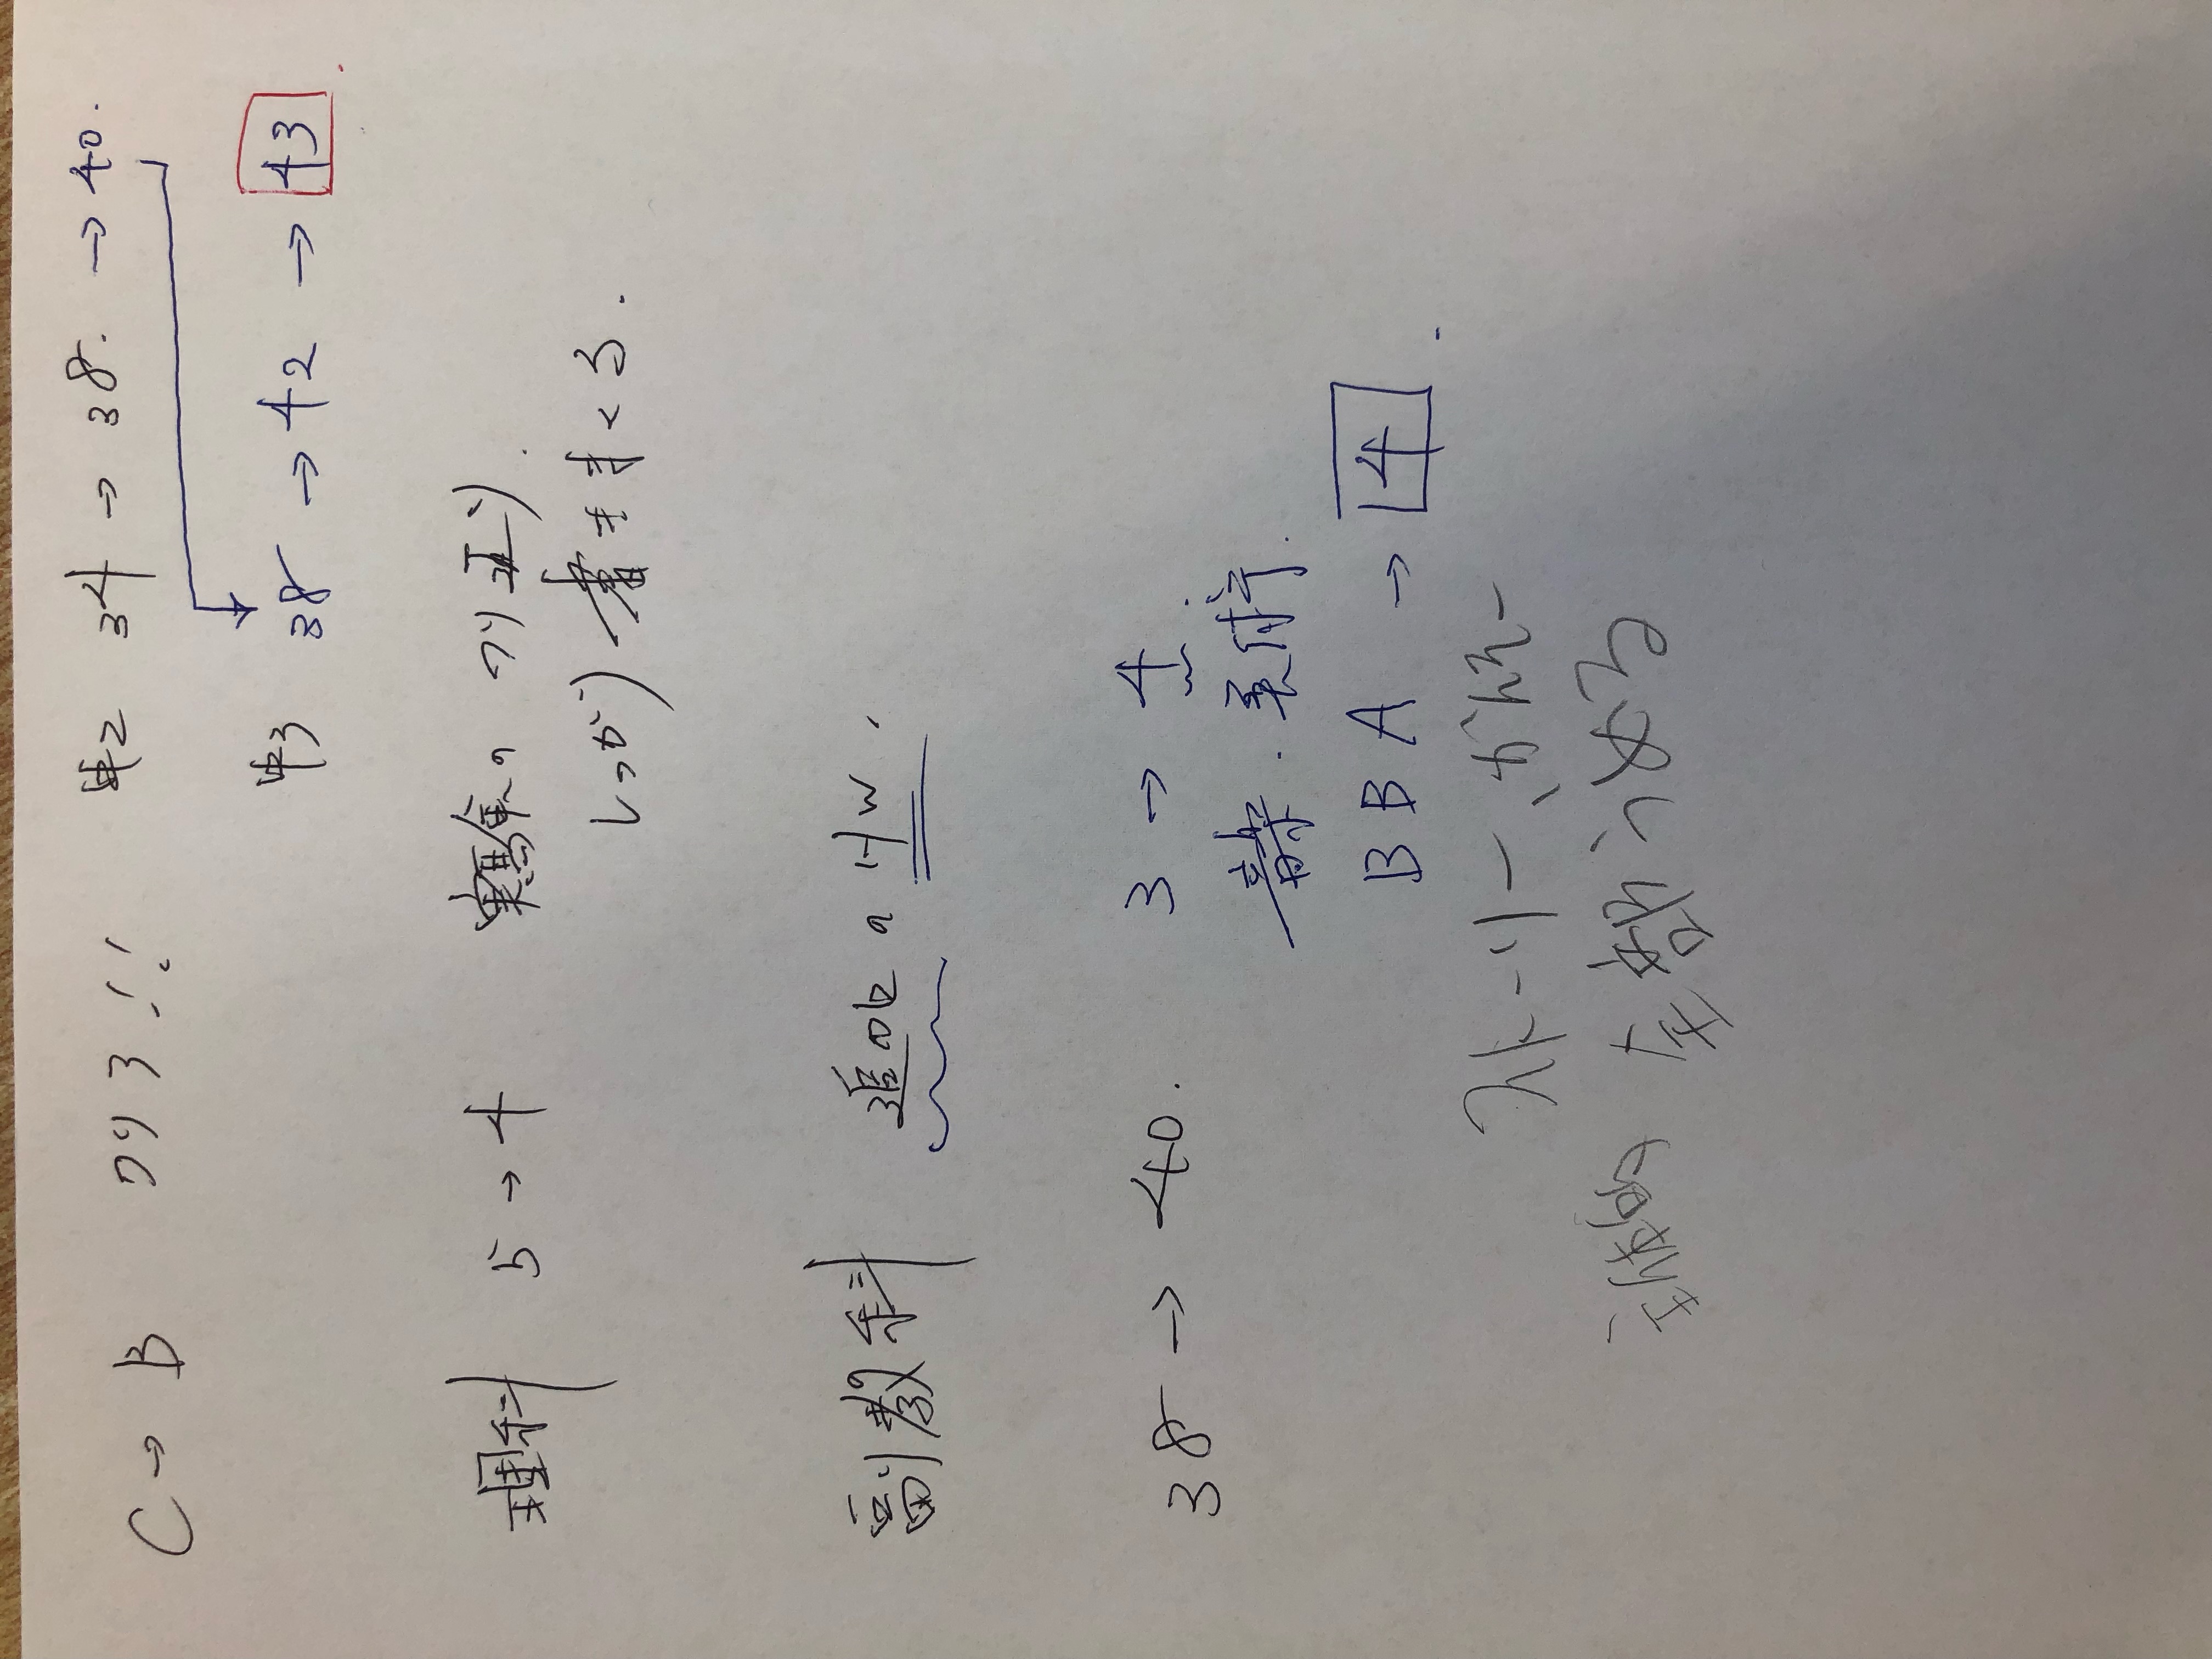 C → B クリア!!
中2 34 → 38. → 40.
中3 38 → 42 → 43
理科 5 → 4 実験の クリエリ.
しっかり書きまくる.
副教科 追加の HW.
38 → 40. 3 → 4.
音楽.美術.
B B A → 4.
ストーリー、がんそー
主体的 全部うめる